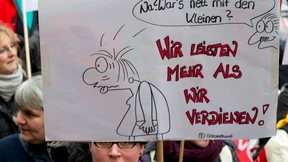 Na? War's nett mit den
Kleinen?
WIR LEISTEN
MEHR ALS
WIR
VERDIENEN!